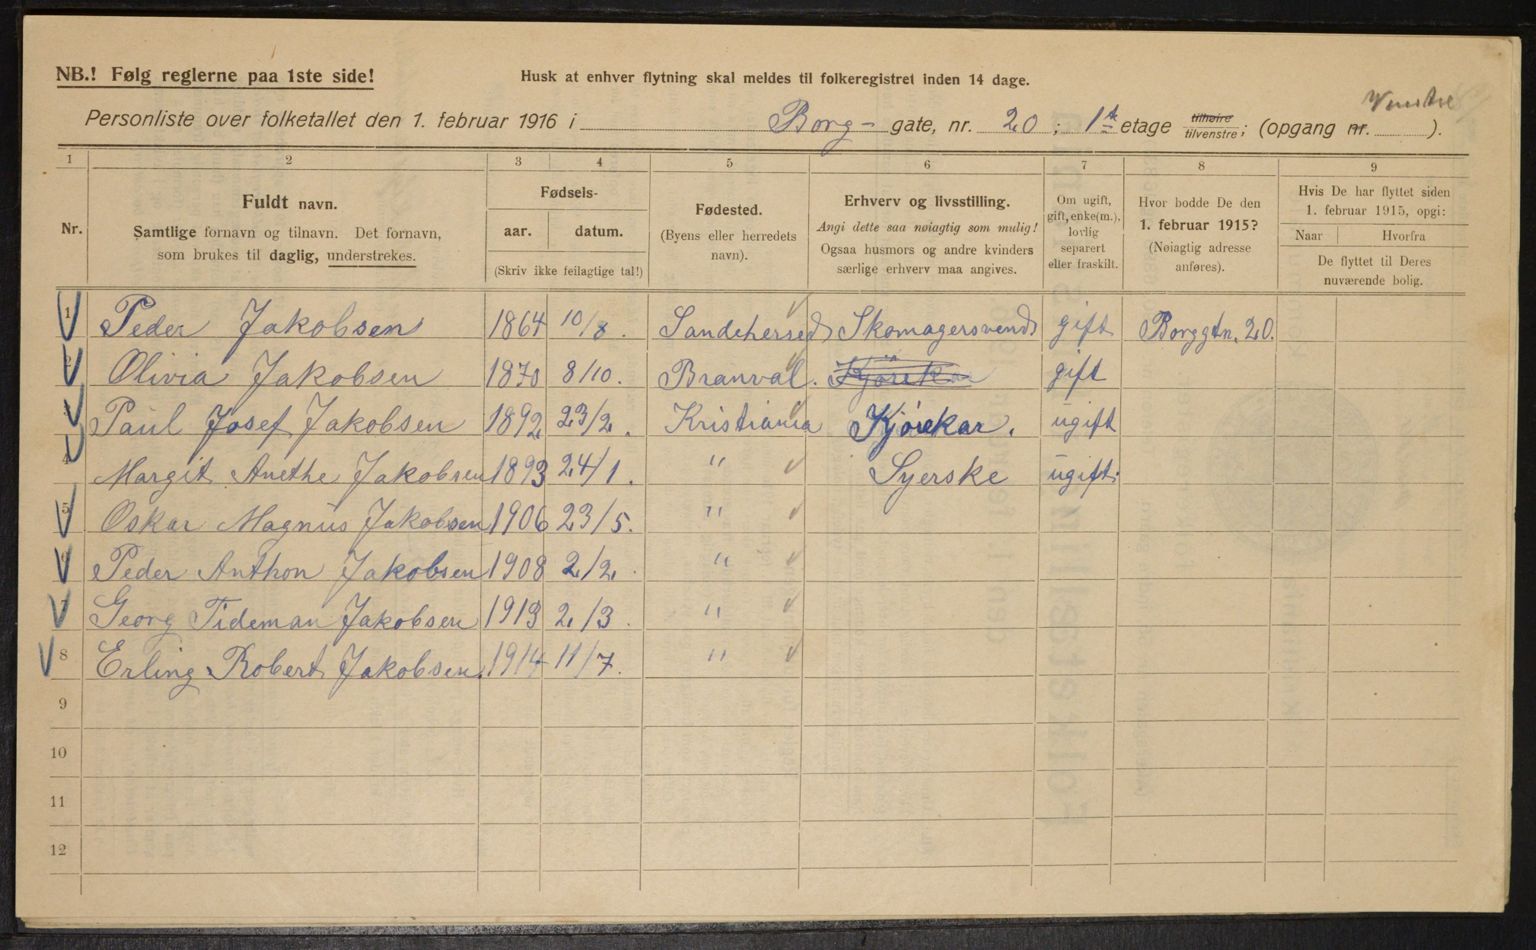 NB.! Følg reglerne paa 1ste side!
Husk at enhver flytning skal meldes til folkeregistret inden 14 dage.
Venstre
Personliste over folketallet den 1. februar 1916 i Borg- gate, nr. 20 ; 1ste etage tilhøire tilvenstre ; (opgang nr. ).
1 2 3 4 5 6 7 8 9
Nr.
Fuldt navn.
Samtlige fornavn og tilnavn. Det fornavn,
som brukes til daglig, understrekes.
Fødsels-
aar. datum.
(Skriv ikke feilagtige tal!)
Fødested.
(Byens eller herredets
navn).
Erhverv og livsstilling.
Angi dette saa nøiagtig som mulig!
Ogsaa husmors og andre kvinders
særlige erhverv maa angives.
Om ugift,
gift, enke(m.),
lovlig
separert
eller fraskilt.
Hvor bodde De den
1. februar 1915?
(Nøiagtig adresse
anføres).
Hvis De har flyttet siden
1. februar 1915, opgi:
Naar Hvorfra
De flyttet til Deres
nuværende bolig.
1 Peder Jakobsen 1864 10/8. Sandeherred Skomagersvend gift Borggtn. 20.
2 Olivia Jakobsen 1870 8/10. Branval. Kjörekar gift
3 Paul Josef Jakobsen 1892 23/2. Kristiania Kjörekar. ugift
4 Margit Anethe Jakobsen 1893 24/1. " Syerske ugift.
5 Oskar Magnus Jakobsen 1906 23/5. "
6 Peder Anthon Jakobsen 1908 2/2. "
7 Georg Tideman Jakobsen 1913 2/3. "
8 Erling Robert Jakobsen. 1914 11/7. "
9
10
11
12